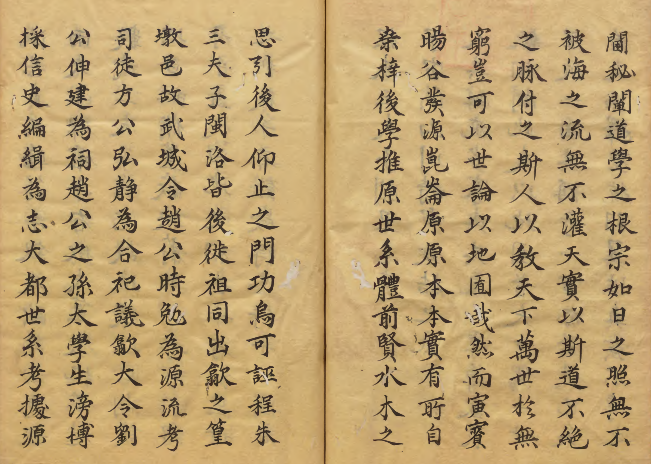 閫秘闡道學之根宗如日之照無不
被海之流無不灌天實以斯道不絶
之脉付之斯人以教天下萬世於無
窮豈可以世論以地囿哉然而寅賓
暘谷發源崑崙原原本本實有所自
桑梓後學推原世系體前賢水木之
思引後人仰止之門功烏可誣程朱
三夫子閩洛皆後徙祖同出歙之篁
墩邑故武城令趙公時勉為源流考
司徒方公弘静為合祀議歙大令劉
公伸建為祠趙公之孫太學生滂槫
採信史編緝為志大都世系考據源